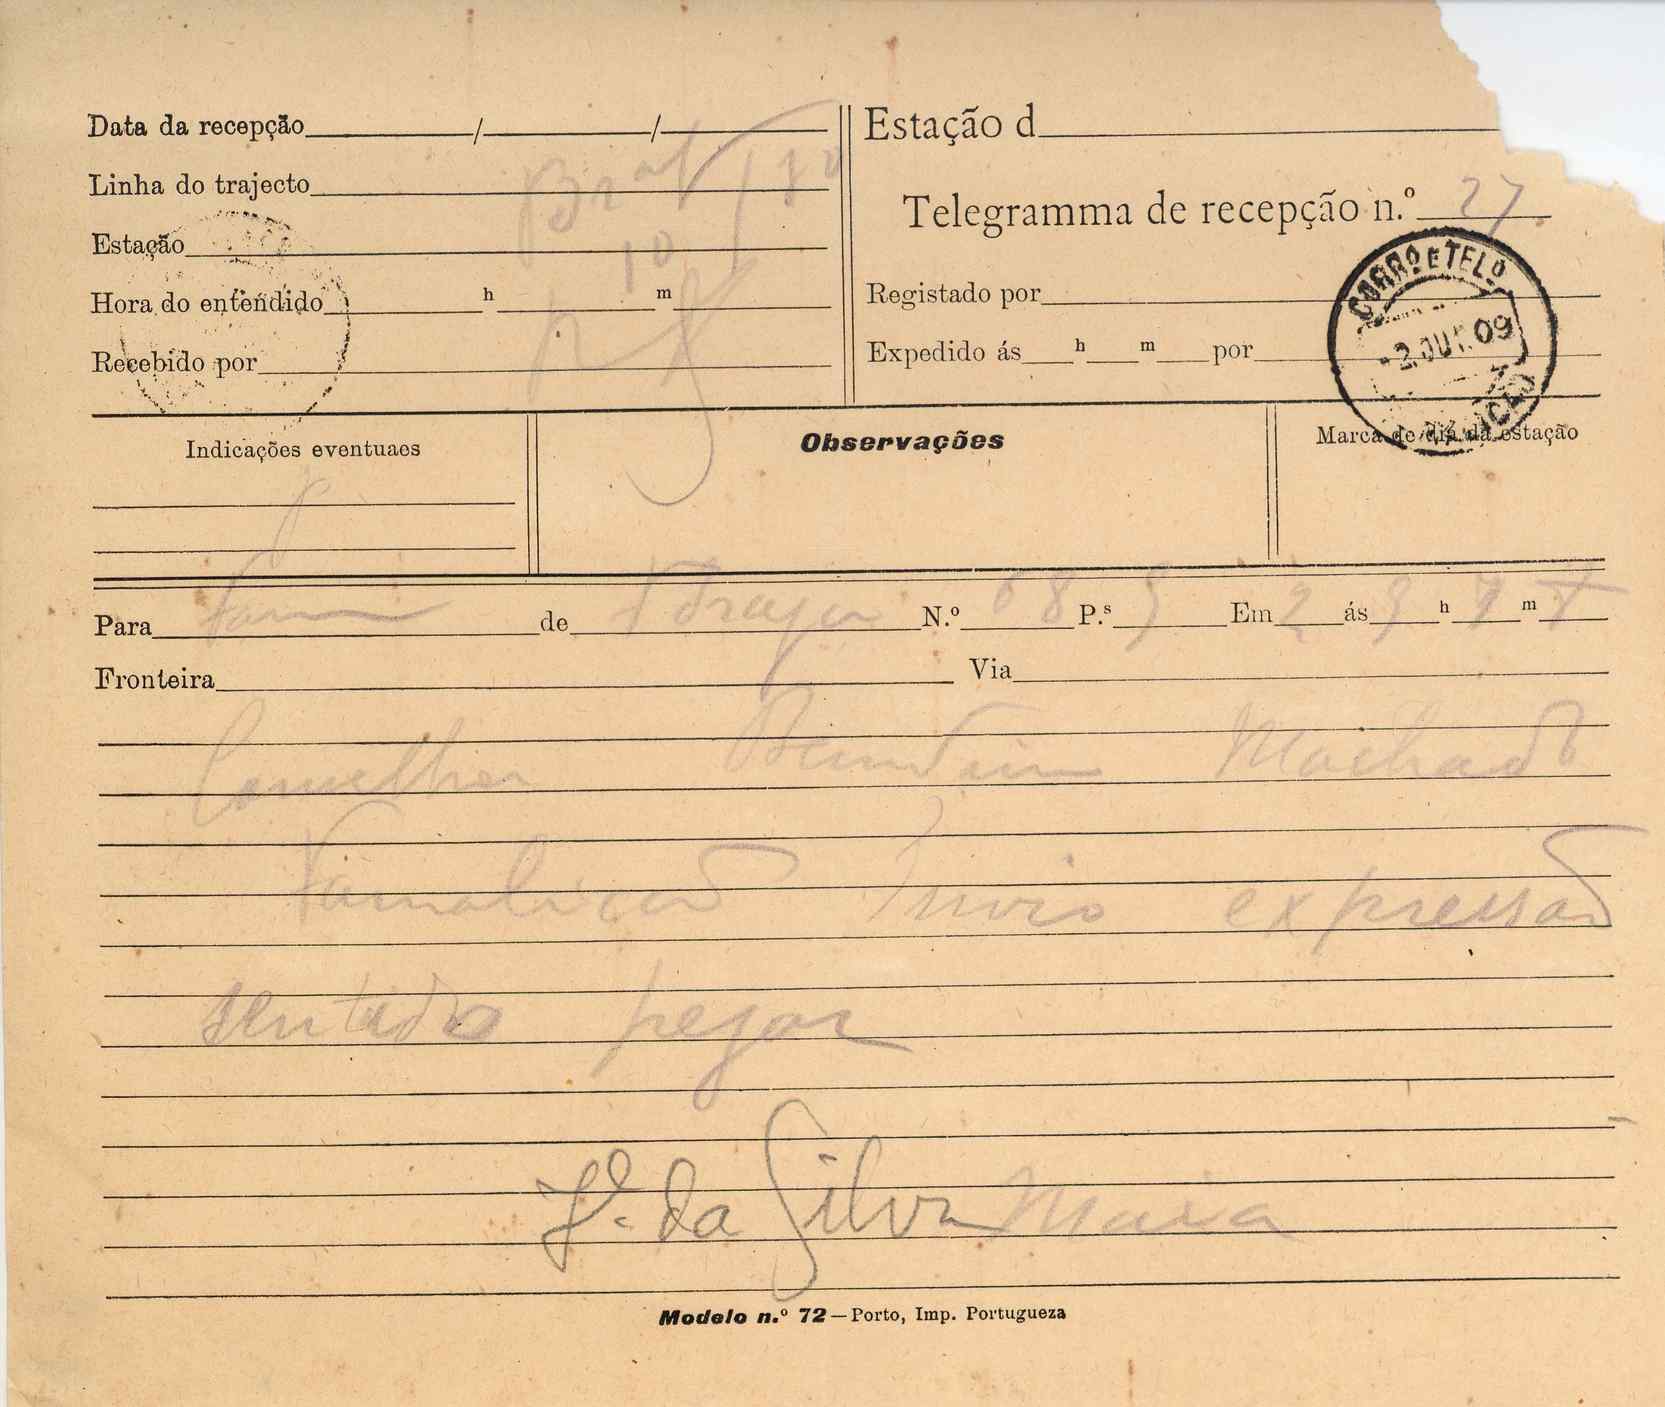 Data da recepção / /
Linha do trajecto
Estação
Hora do entendido h m
Recebido por
Estação d
Telegramma de recepção n.º 27
Registado por
Expedido ás h m por
CORRO E TELO
2 OUT. 09
Indicações eventuaes
Observações
Marca de dia da estação
Para Fam de Braga N.º 68 P.s 9 Em 2 ás 9 h m
Fronteira Via
Conselheiro Bernardino Machado
Famalicão Envio expressão
sentido pezar
Je. da Silva Maia
Modelo n.º 72 — Porto, Imp. Portugueza